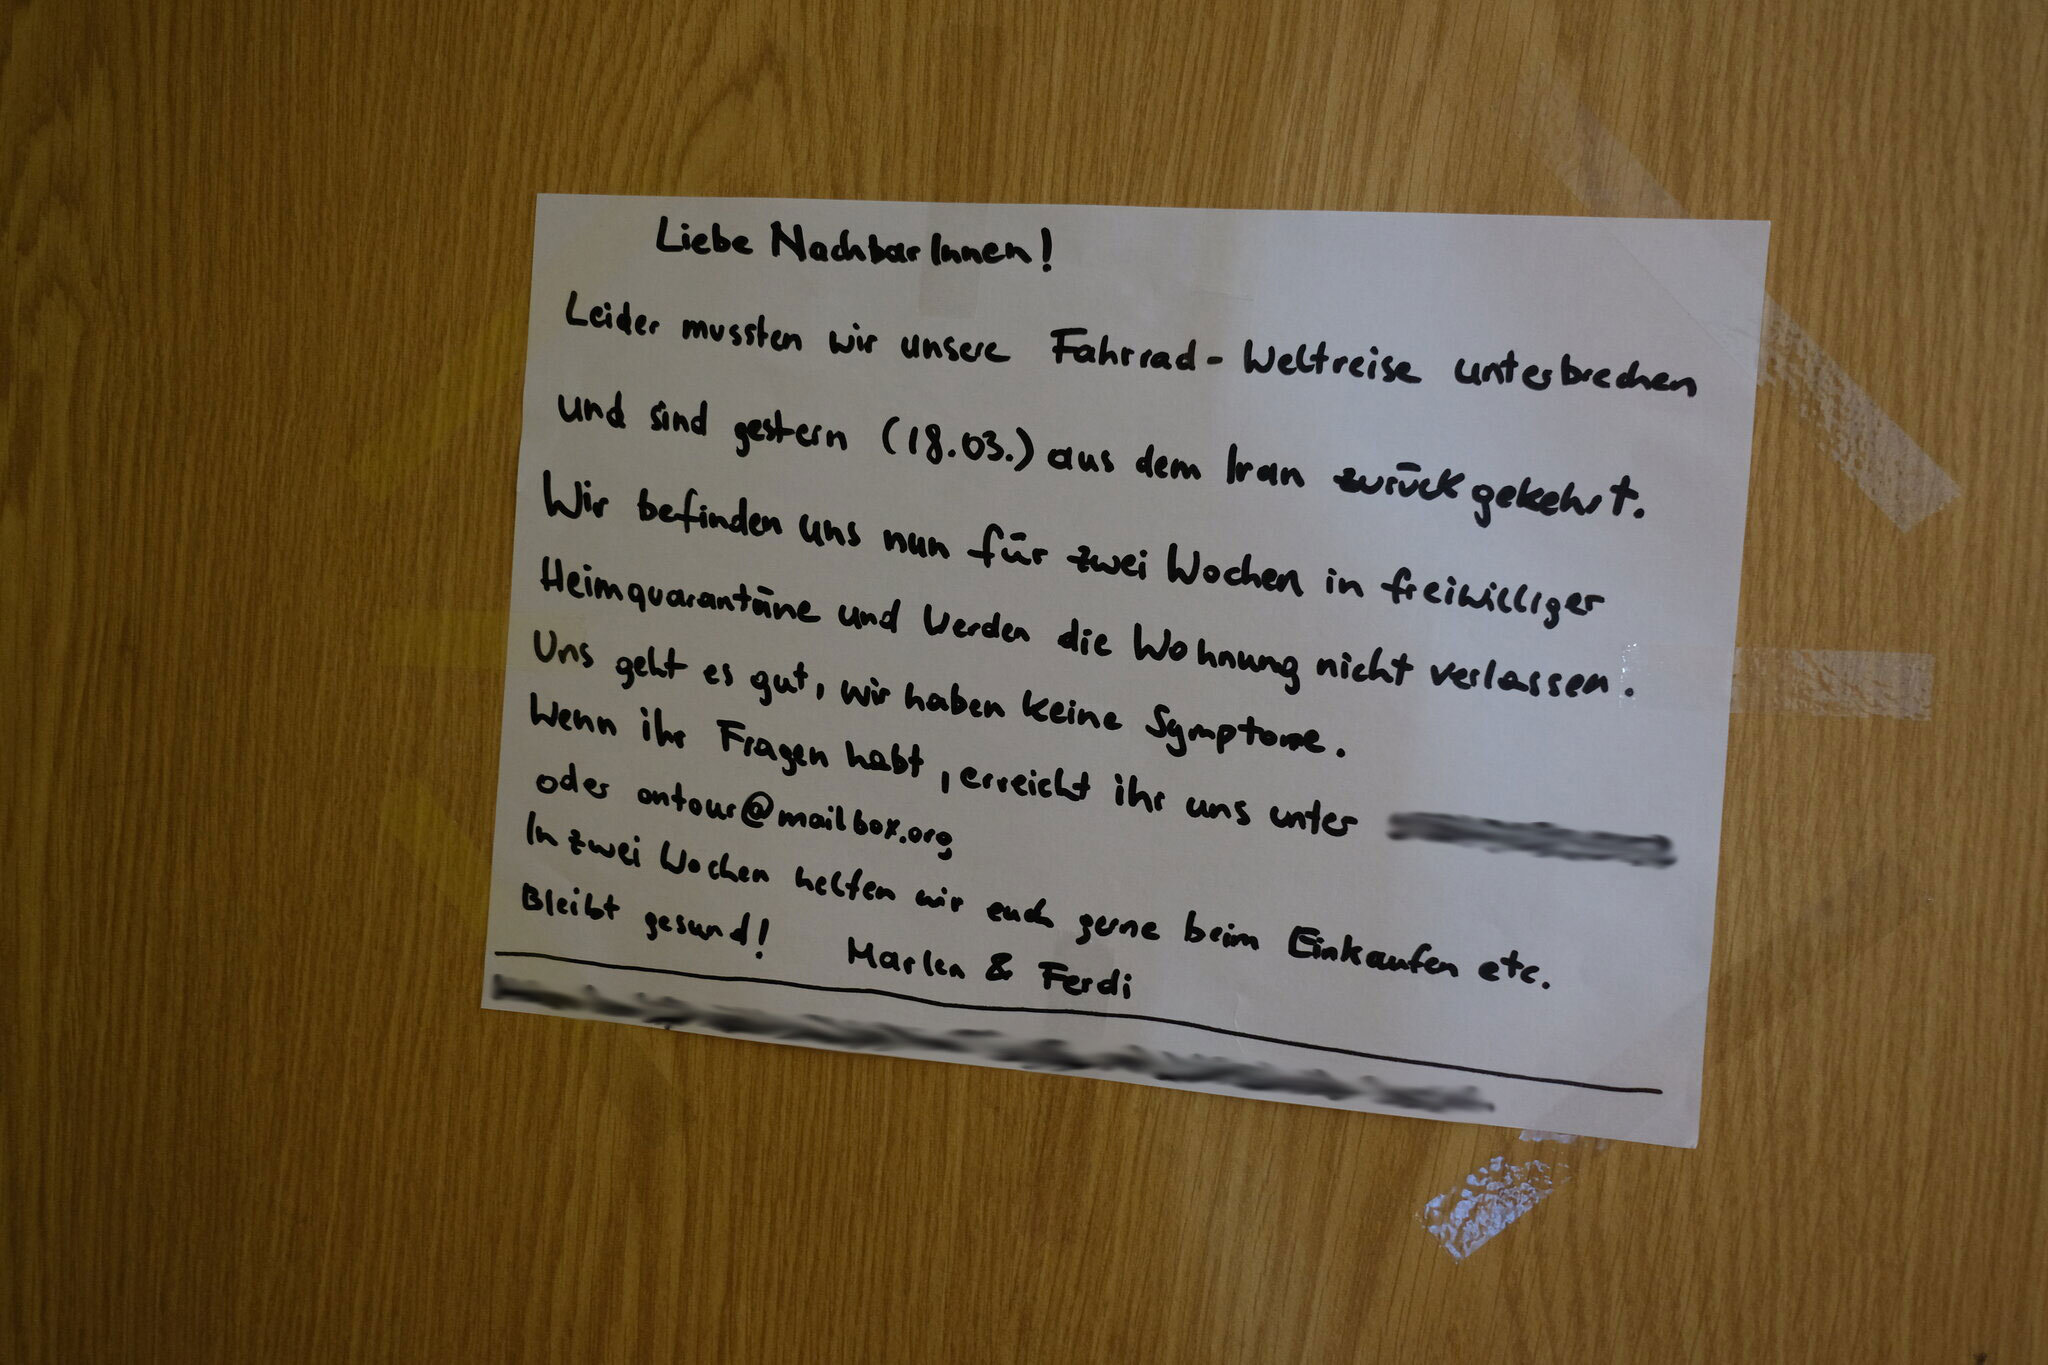 Liebe NachbarInnen!
Leider mussten wir unsere Fahrrad-Weltreise unterbrechen
und sind gestern (18.03.) aus dem Iran zurückgekehrt.
Wir befinden uns nun für zwei Wochen in freiwilliger
Heimquarantäne und werden die Wohnung nicht verlassen.
Uns geht es gut, wir haben keine Symptome.
Wenn ihr Fragen habt, erreicht ihr uns unter
oder ontour@mailbox.org
In zwei Wochen helfen wir euch gerne beim Einkaufen etc.
Bleibt gesund! Marlen & Ferdi